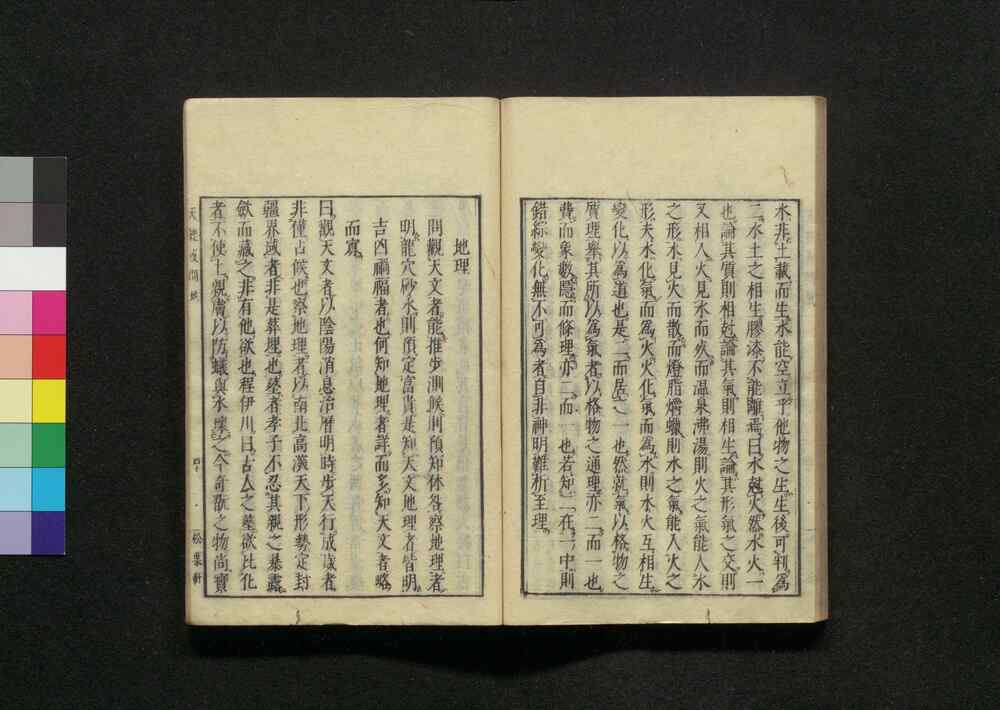 水非土載而生水能空立乎他物之生生後可判為
二水土之相生膠漆不能離焉曰水尅火然水火一
也論其質則相尅論其氣則相生論其形氣之交則
又相入火見水而然而溫泉沸湯則火之氣能入水
之形水見火而散而燈脂爝蠟則水之氣能入火之
形夫水化氣而為火火化氣而為水則水火互相生
變化以為道也是二而居之一也然就氣以格物之
質理舉其所以為氣者以格物之通理亦二而一也
費而象數隱而條理亦二而一也若知二在一中則
錯綜變化無不可為者自非神明難析至理
地理
問觀天文者能推步測候則預知休咎察地理者
明龍穴砂水則頂定富貴是知天文地理者皆明
吉凶禍福者也何知地理者詳而多知天文者略
而寡
曰觀天文者以陰陽消息治曆明時步天行成歲者
非僅占候也察地理者以南北高漢天下形勢定封
疆界域者非是葬埋也葬者孝子不忍其親之暴露
斂而藏之非有他欲也程伊川曰古人之墓欲比化
者不使土親膚以防蟻與水壞之今奇翫之物尚寶
天 或問 四十 松葉軒